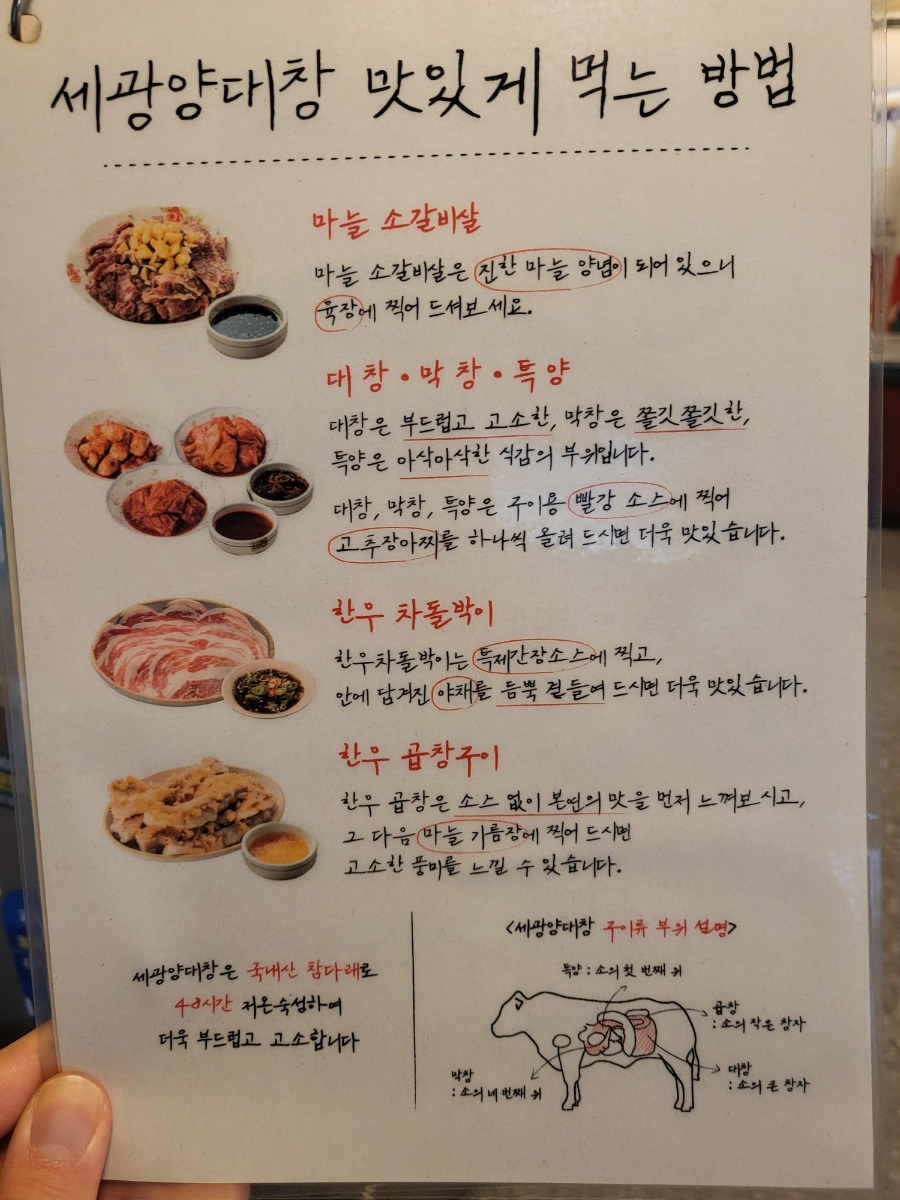 세광양대창 맛있게 먹는 방법
마늘 소갈비살
마늘 소갈비살은 진한 마늘 양념이 되어 있으니
육장에 찍어 드셔보세요.
대창·막창·특양
대창은 부드럽고 고소한, 막창은 쫄깃쫄깃한,
특양은 아삭아삭한 식감의 부위입니다.
대창, 막창, 특양은 구이용 빨강 소스에 찍어
고추장아찌를 하나씩 올려 드시면 더욱 맛있습니다.
한우 차돌박이
한우차돌박이는 특제간장소스에 찍고,
안에 담겨진 야채를 듬뿍 곁들여 드시면 더욱 맛있습니다.
한우 곱창구이
한우 곱창은 소스 없이 본연의 맛을 먼저 느껴보시고,
그 다음 마늘 기름장에 찍어 드시면
고소한 풍미를 느낄 수 있습니다.
세광양대창은 국내산 참다래로
48시간 저온숙성하여
더욱 부드럽고 고소합니다
<세광양대창 구이류 부위 설명>
특양 : 소의 첫 번째 위
곱창
: 소의 작은 창자
대창
: 소의 큰 창자
막창
: 소의 네 번째 위